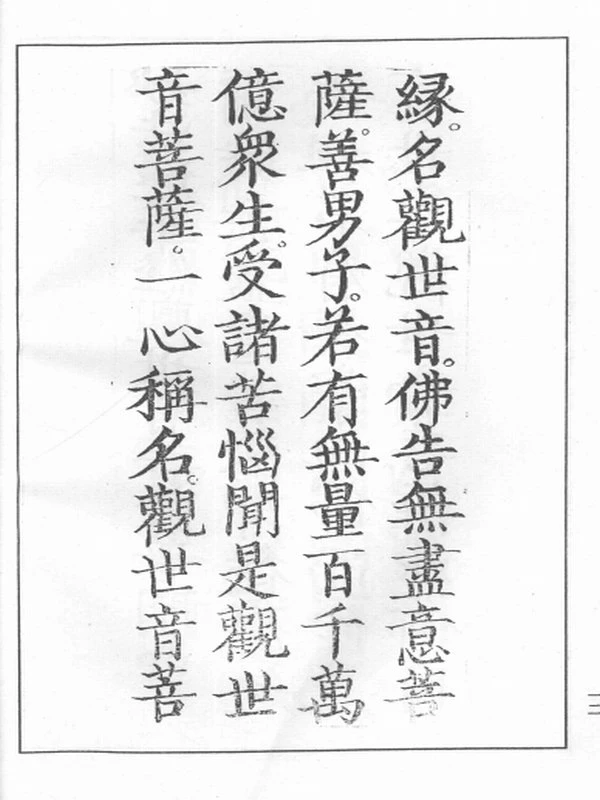 緣。名觀世音。佛告無盡意菩
薩。善男子。若有無量百千萬
億衆生。受諸苦惱聞是觀世
音菩薩。一心稱名。觀世音菩